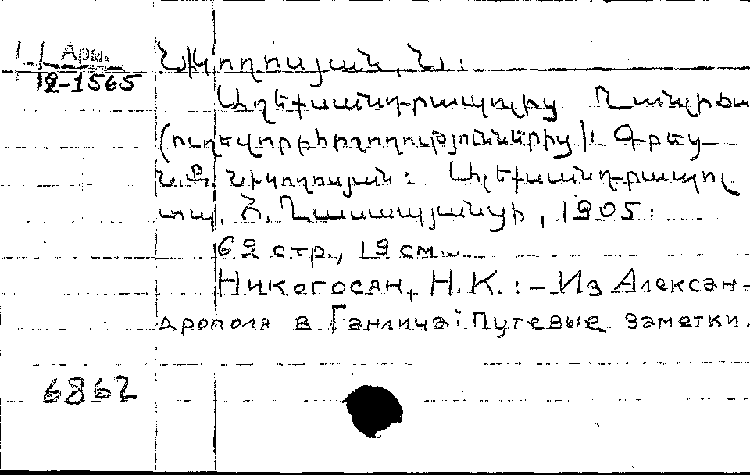 Арм.
12-1565
Նիկողոսյան, Ն.:
Ալեքսանդրապոլից Ղանլիճա
(ուղեվորի հիշողություններից): Գրեց
Ն.Ք. Նիկողոսյան: Ալեքսանդրապոլ
տպ. Հ. Ղասապյանցի, 1905.
62 стр., 19 см.
Никогосян, Н.К.: – Из Алексан-
дрополя в Ганлича: Путевые заметки.
6862